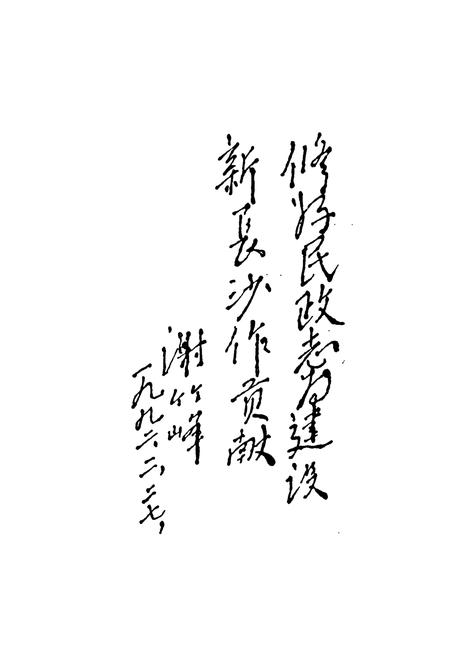 修好民政志为建设
新长沙作贡献
谢竹峰
一九九六、二、二七,